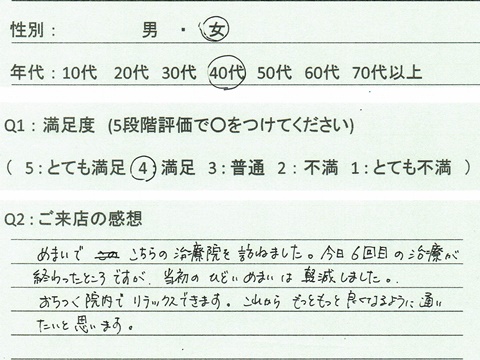 性別： 男 ・ 女
年代：10代 20代 30代 40代 50代 60代 70代以上
Q1：満足度 (5段階評価で〇をつけてください)
( 5：とても満足 4：満足 3：普通 2：不満 1：とても不満 )
Q2：ご来店の感想
めまいで こちらの治療院を訪ねました。今日6回目の治療が
終わったところですが、当初のひどいめまいは軽減しました。
おちつく院内でリラックスできます。これからもっともっと良くなるように通い
たいと思います。